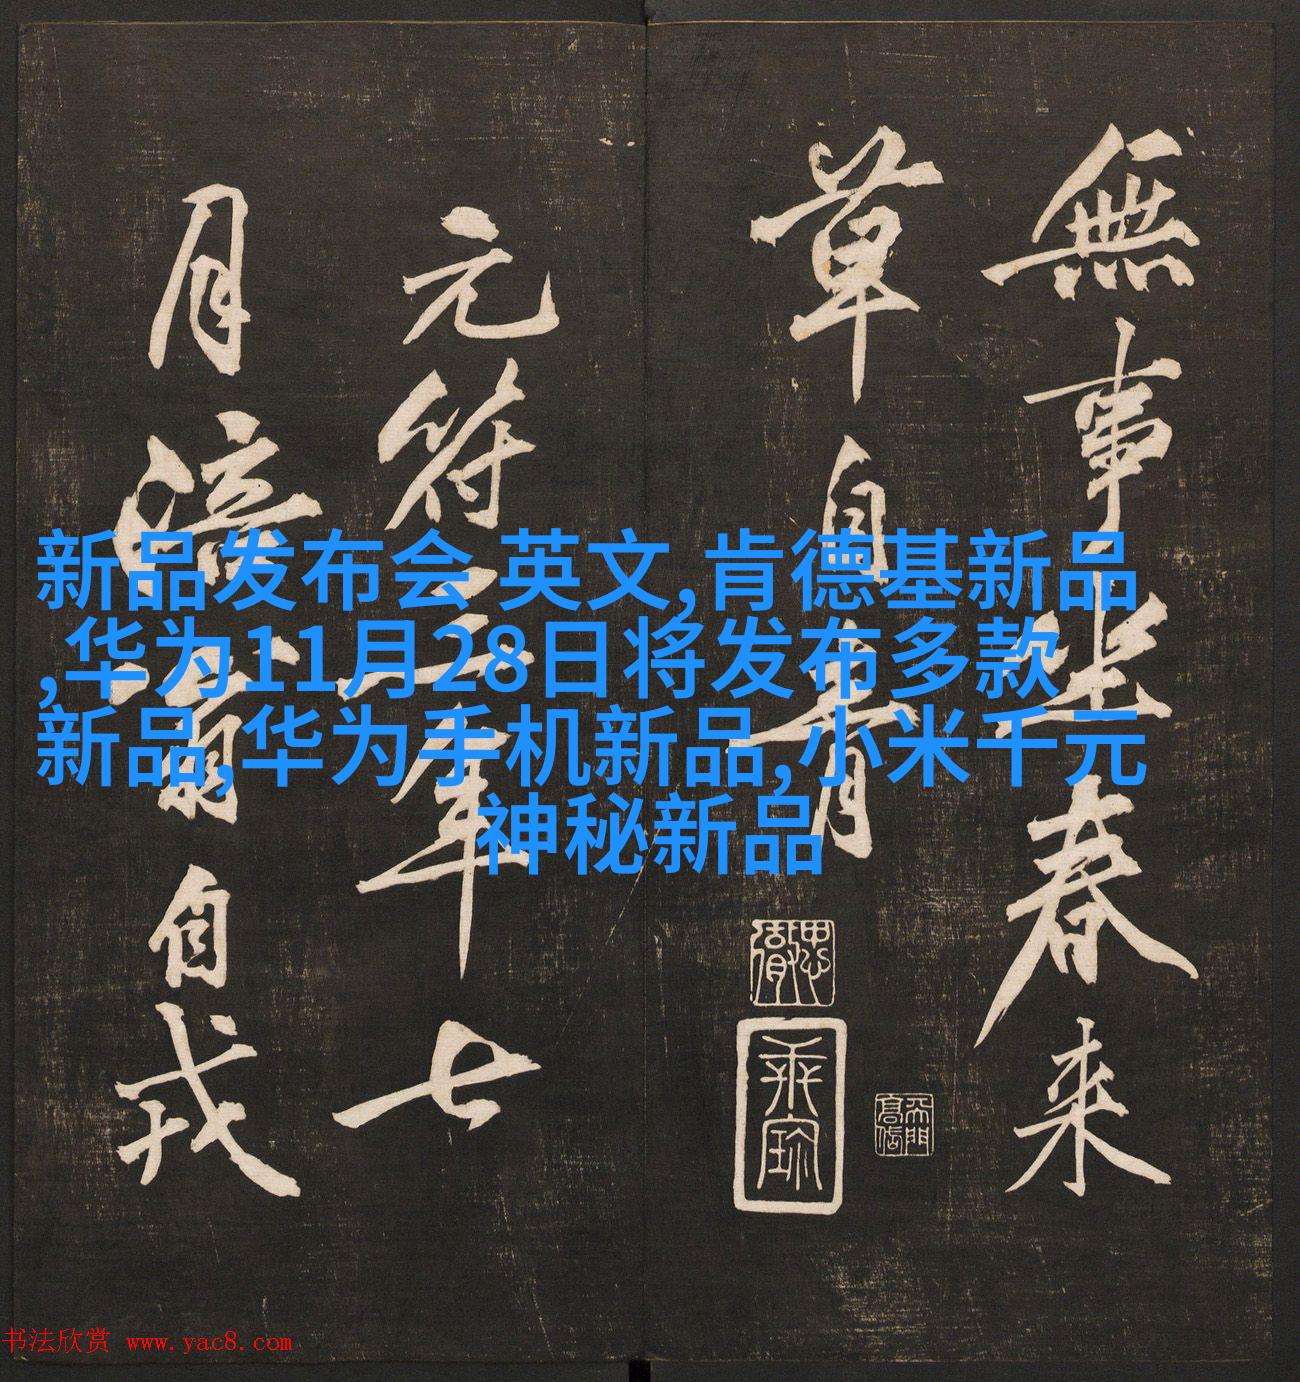 無事坐春来
草自青
元符三年七
月涪翁自戎
新品发布会 英文,肯德基新品
,华为11月28日将发布多款
新品,华为手机新品,小米千元
神秘新品
书法欣赏 www.yac8.com